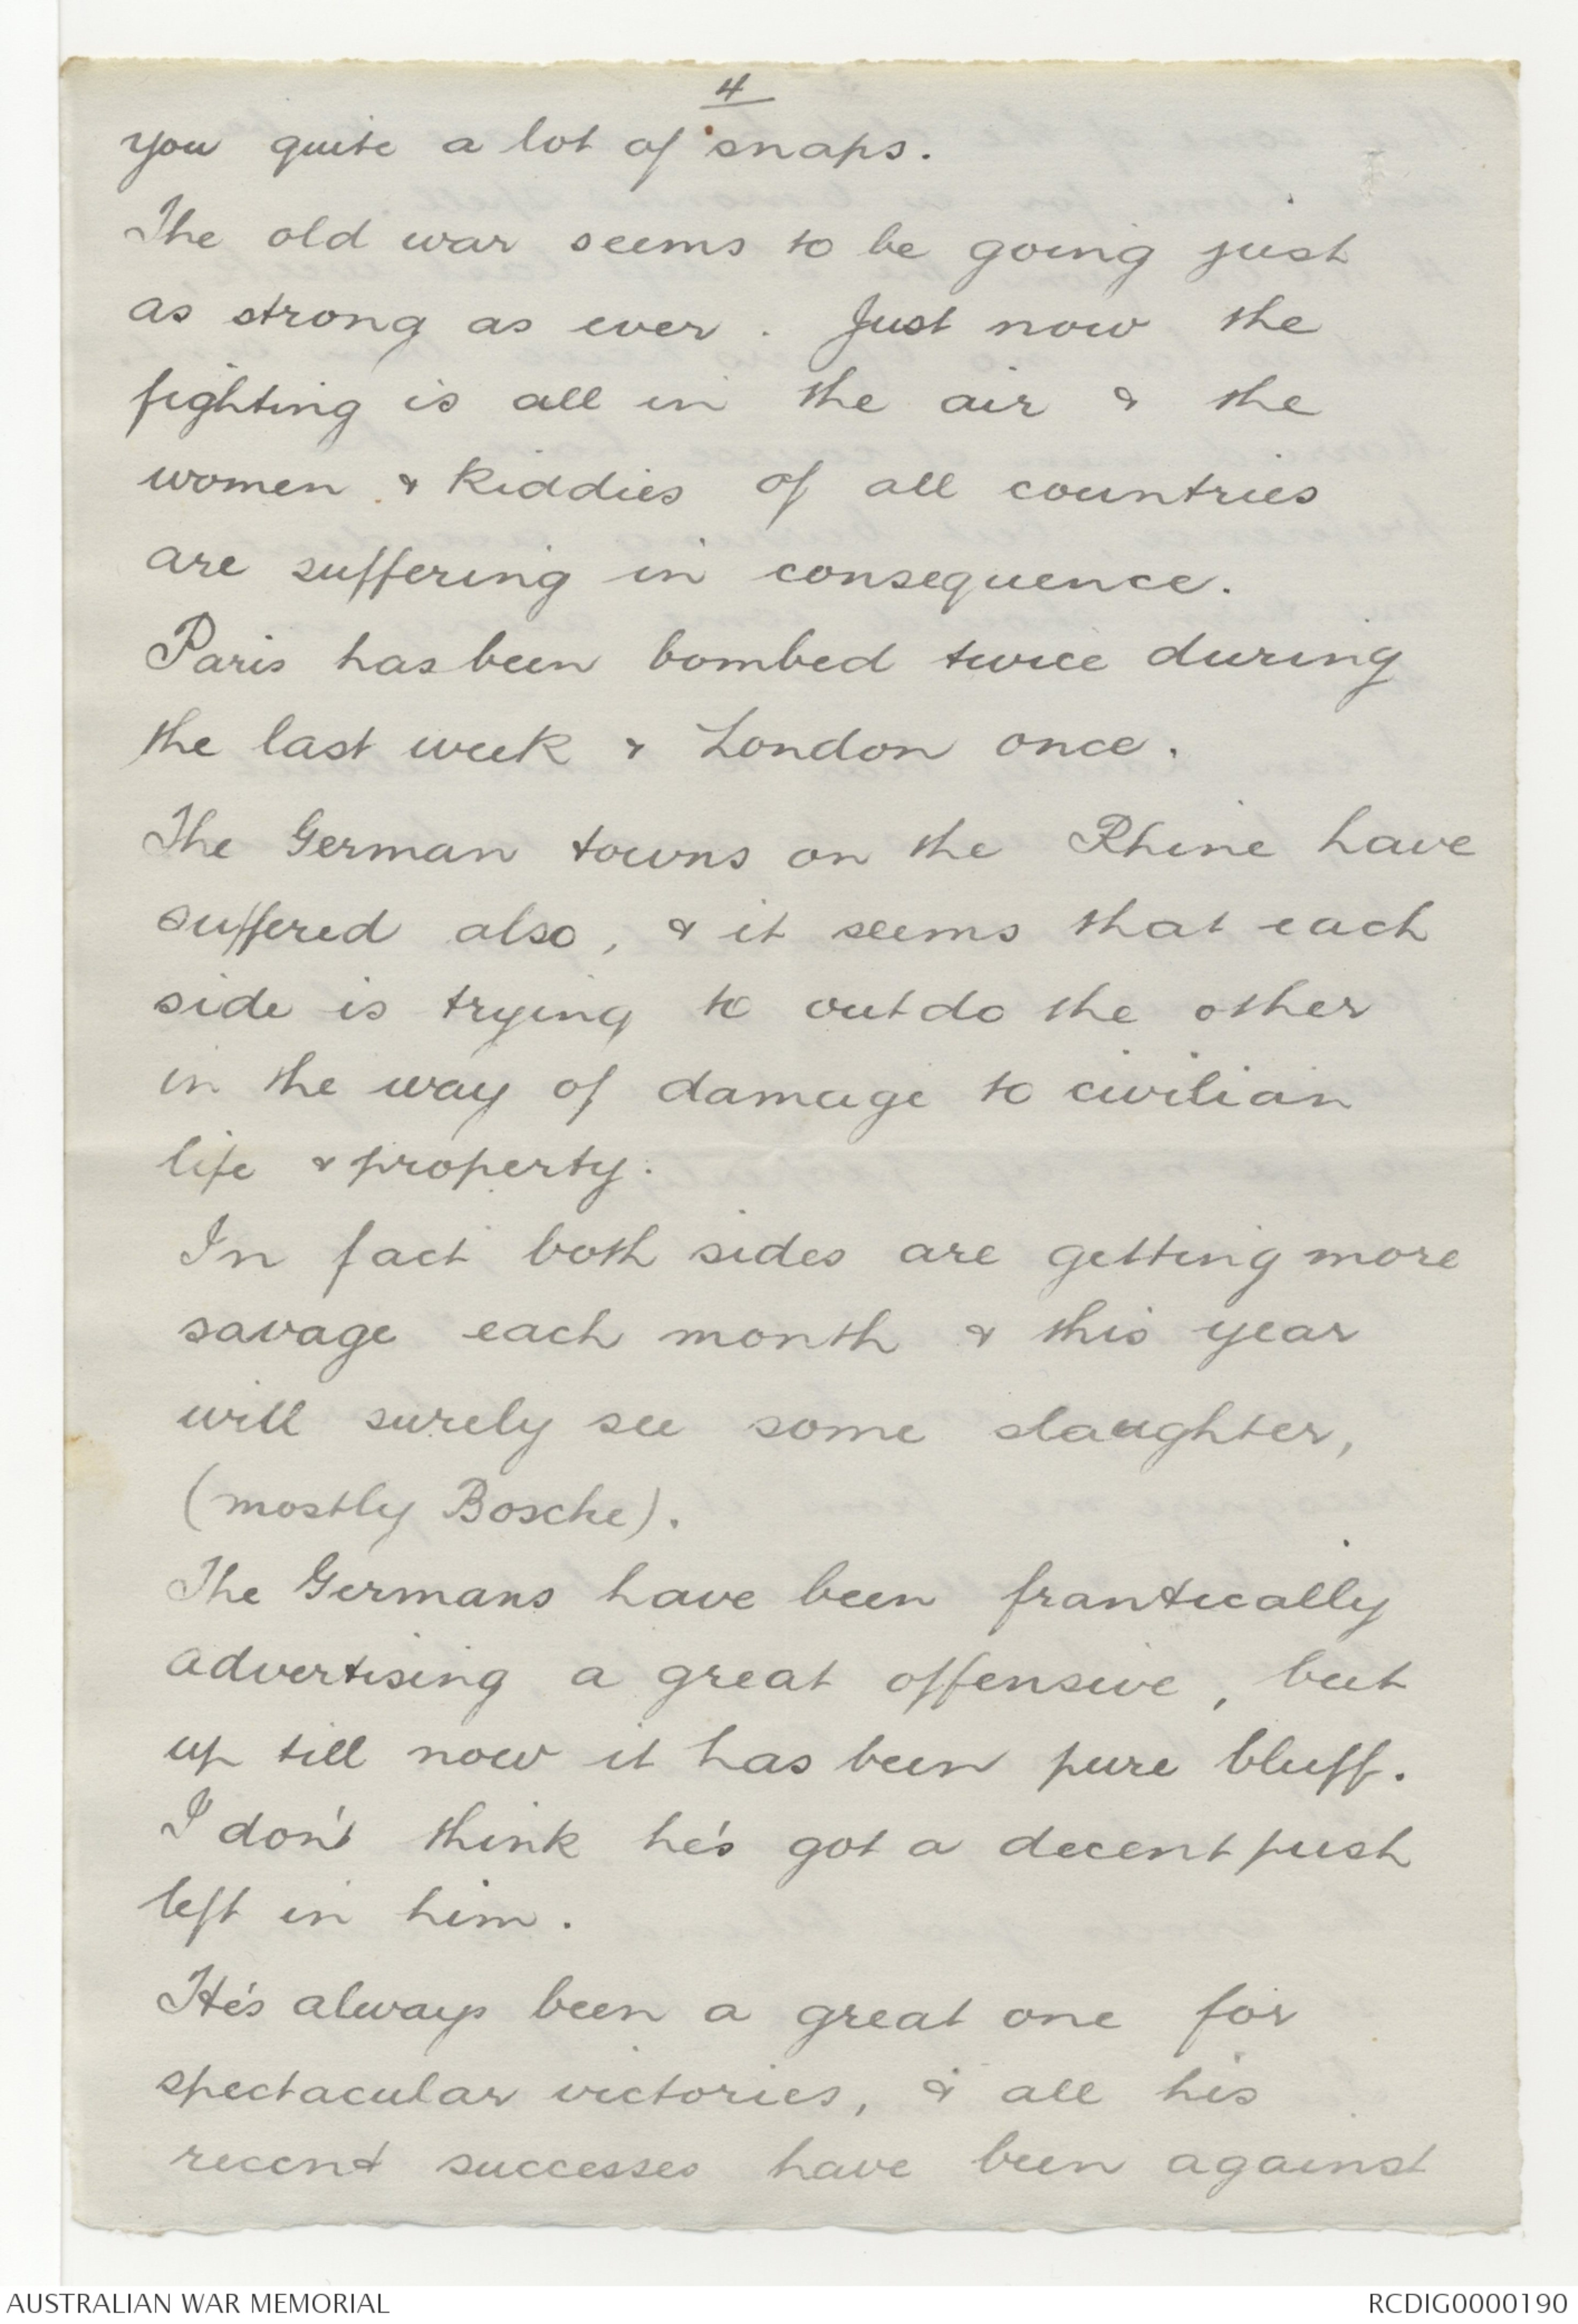 4
you quite a lot of snaps.
The old war seems to be going just
as strong as ever. Just now the
fighting is all in the air & the
women & kiddies of all countries
are suffering in consequence.
Paris has been bombed twice during
the last week & London once.
The German towns on the Rhine have
suffered also, & it seems that each
side is trying to outdo the other
in the way of damage to civilian
life & property.
In fact both sides are getting more
savage each month & this year
will surely see some slaughter,
(mostly Bosche).
The Germans have been frantically
advertising a great offensive, but
up till now it has been pure bluff.
I don't think he's got a decent push
left in him.
He's always been a great one for
spectacular victories, & all his
recent successes have been against
AUSTRALIAN WAR MEMORIAL
RCDIG0000190